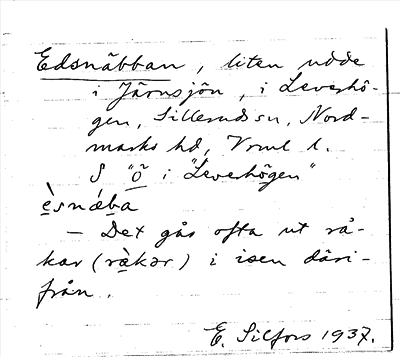 Edsnäbban, liten udde
i Järnsjön, i Leverhö-
gen, Silleruds sn, Nord-
marks hd, Vrml l.
S "ö i "Leverhögen"
èsnǽba
– Det går ofta ut rå-
kar (ràkər) i isen däri-
från.
E. Silfors 1937.